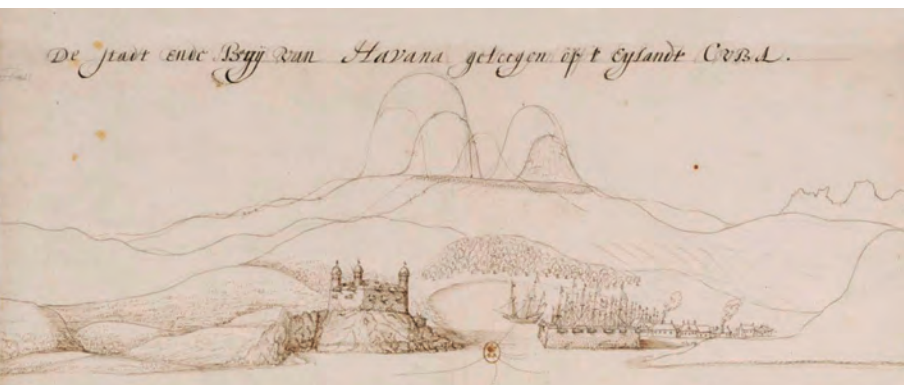 De stadt ende Baij van Havana geleegen op t Eylandt CUBA.